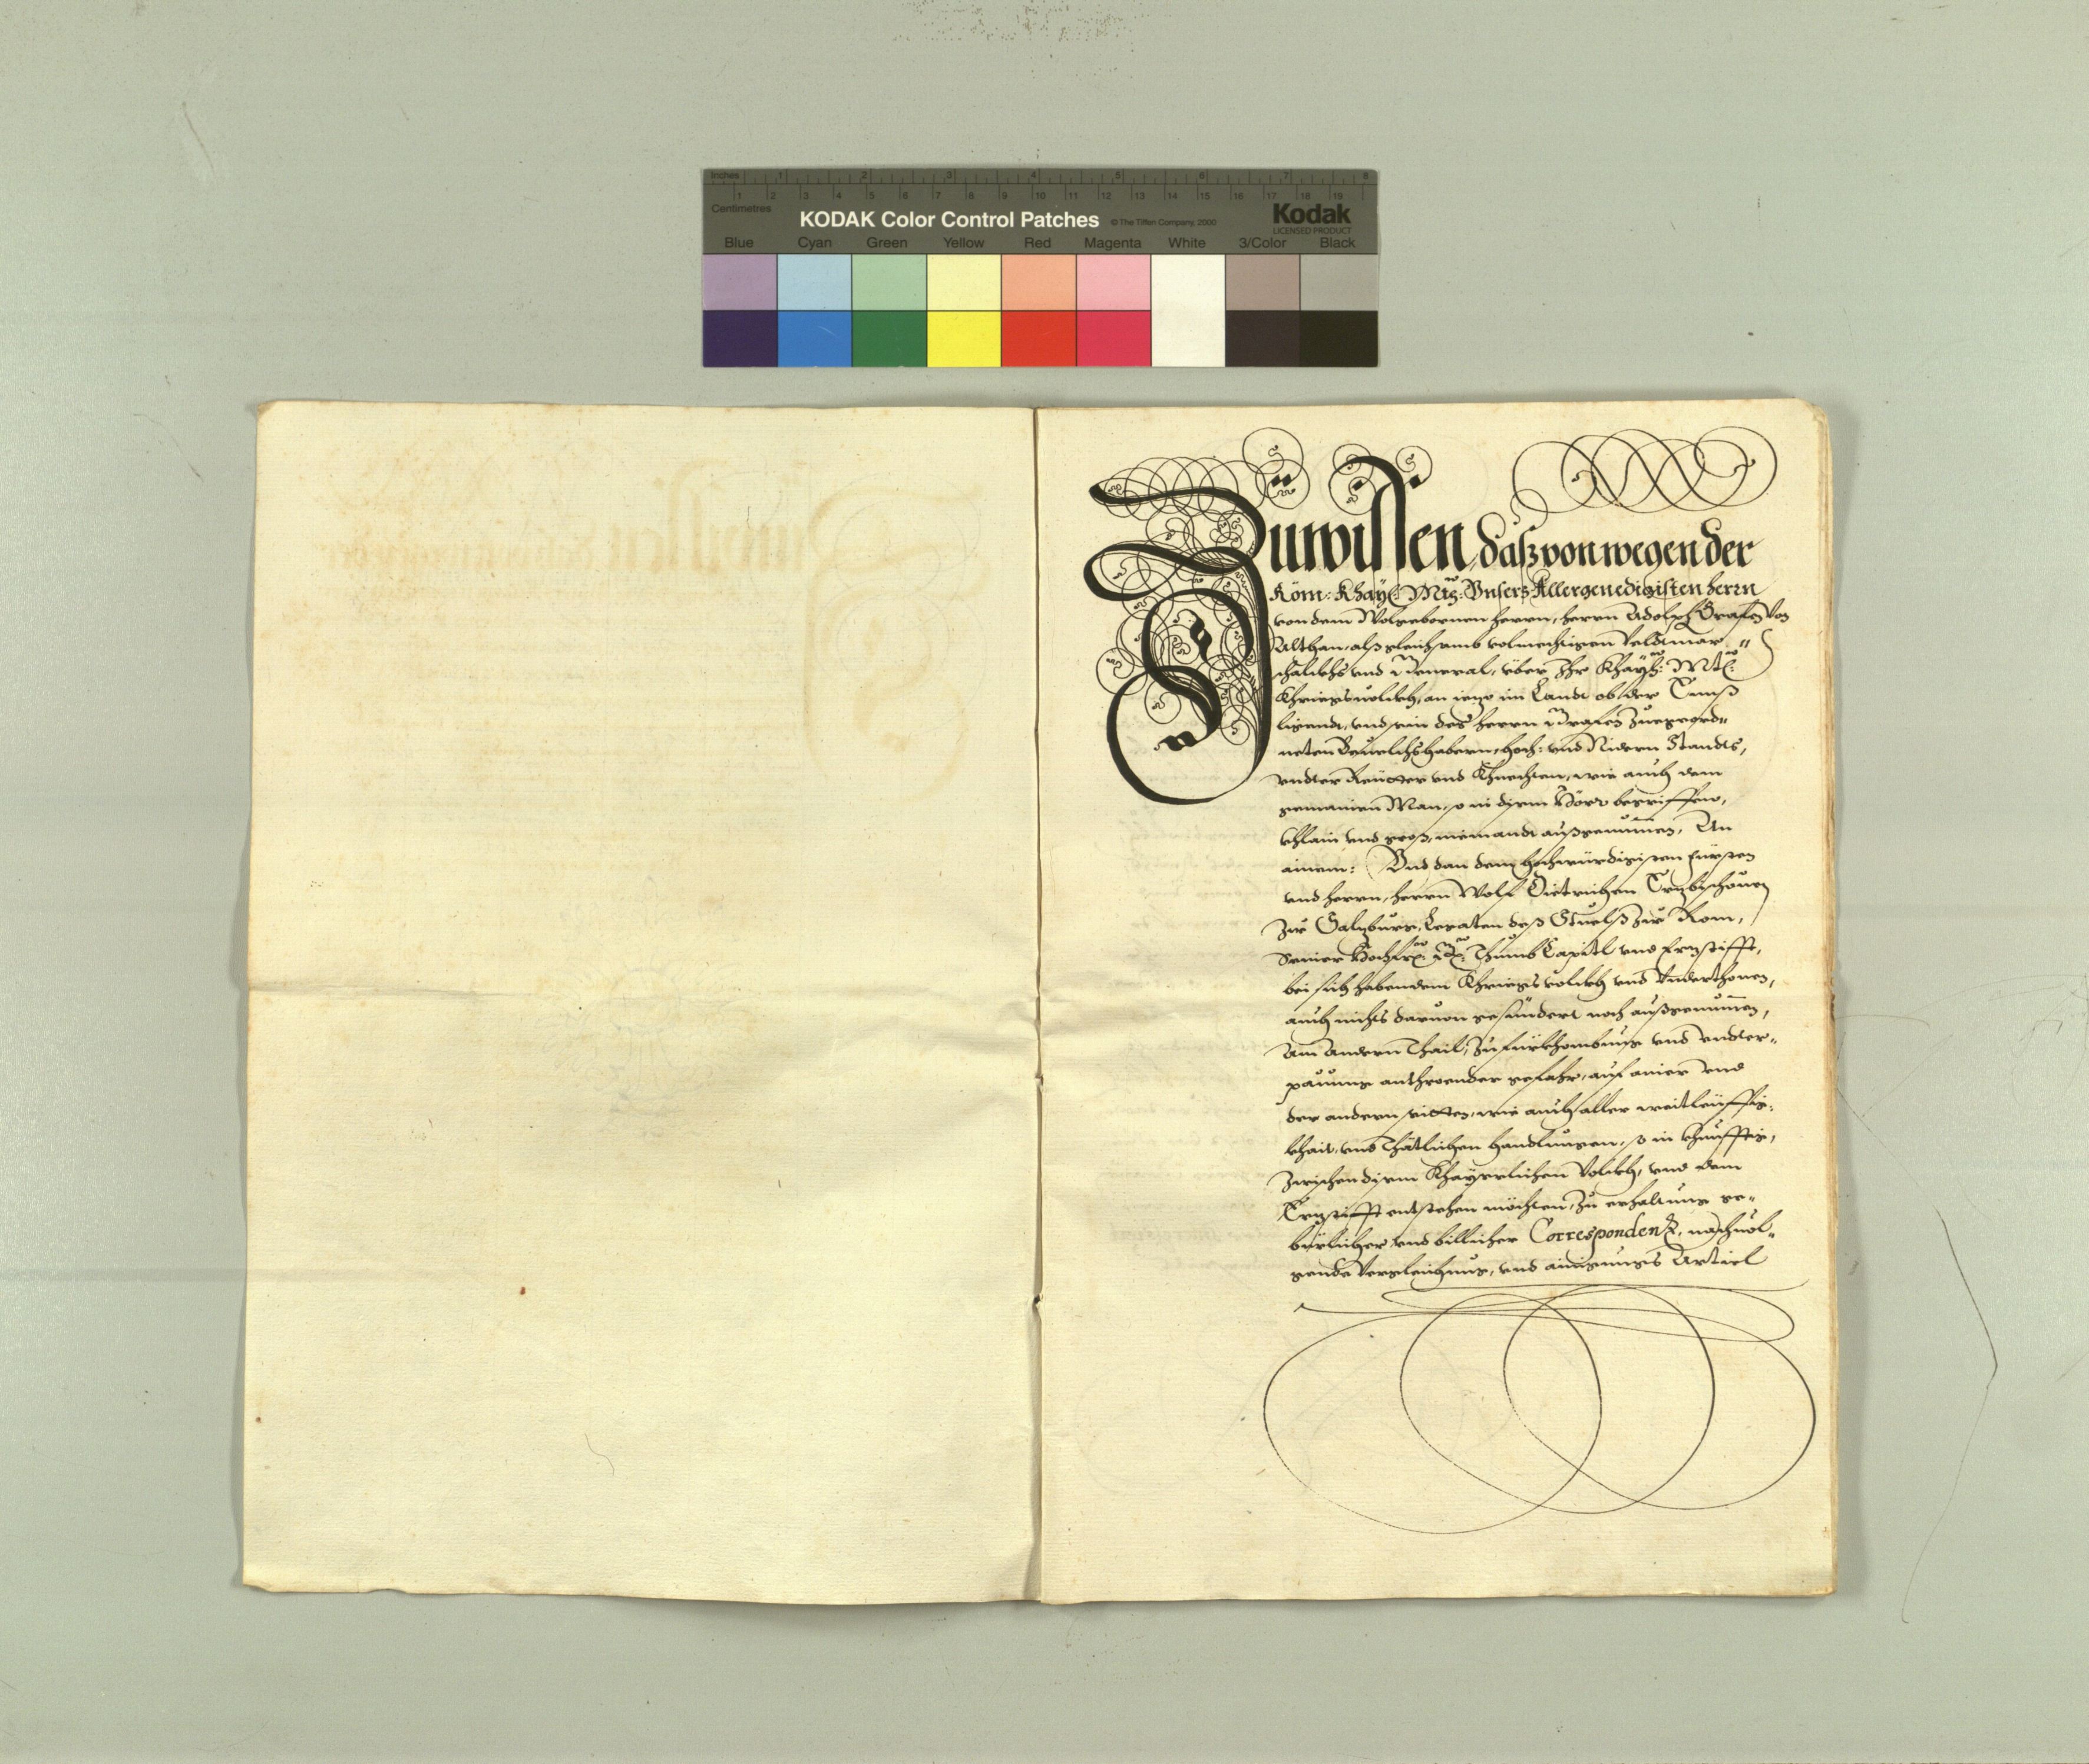 Inches 1 2 3 4 5 6 7 8
Centimetres 1 2 3 4 5 6 7 8 9 10 11 12 13 14 15 16 17 18 19
KODAK Color Control Patches © The Tiffen Company, 2000 Kodak
LICENSED PRODUCT
Blue Cyan Green Yellow Red Magenta White 3/Color Black
Zuwissen, daß von wegen der
Röm: Khay: Mtt: Unsers Allergenedigisten herrn
von dem Wolgebornen herrn, herrn Adolph Grafen von
Althan, alß gleichsamb volmechtigen Veldtmar„
schalckhs und General, über Ihr Khayß: Mtt:
Khriegsvolckh, an iezo im Landt ob der Ennß
ligendt, und sein deß herrn Grafen zuegeord„
neten Beuelchshabern, hoch: und Nidern Standts,
undter Reütter und Khnechten, wie auch dem
gemainen Man, so in disem Hör begriffen,
khlain und groß, niemandt außgenummen, An
ainem: Und dan dem hochwürdigisten Fürsten
und herrn, herrn Wolf Dietrichen Erzbischouen
zu Salzburg, Legaten deß Stuelß zu Rom,
Seiner Hochfr: Gn: Thumb Capitl und Erzstifft,
bei sich habendem Khriegsvolckh und Underthonen,
auch nichts daruon gesündert noch außgenummen,
Am andern Thail, zu fürkhombnus und undter„
pauung anthroender gefahr, auf ainer und
der andern seitten, wie auch aller weitleüffig„
khait, und Thätlichen handlungen, so in khunfftig,
zwischen disem Khayserlichen Volckh, und dem
Erzstifft entstehen möchten, zu erhaltung ge„
bürlicher und billicher Correspondenz, nachuol„
gende Vergleichnus, und ainigungs Articl